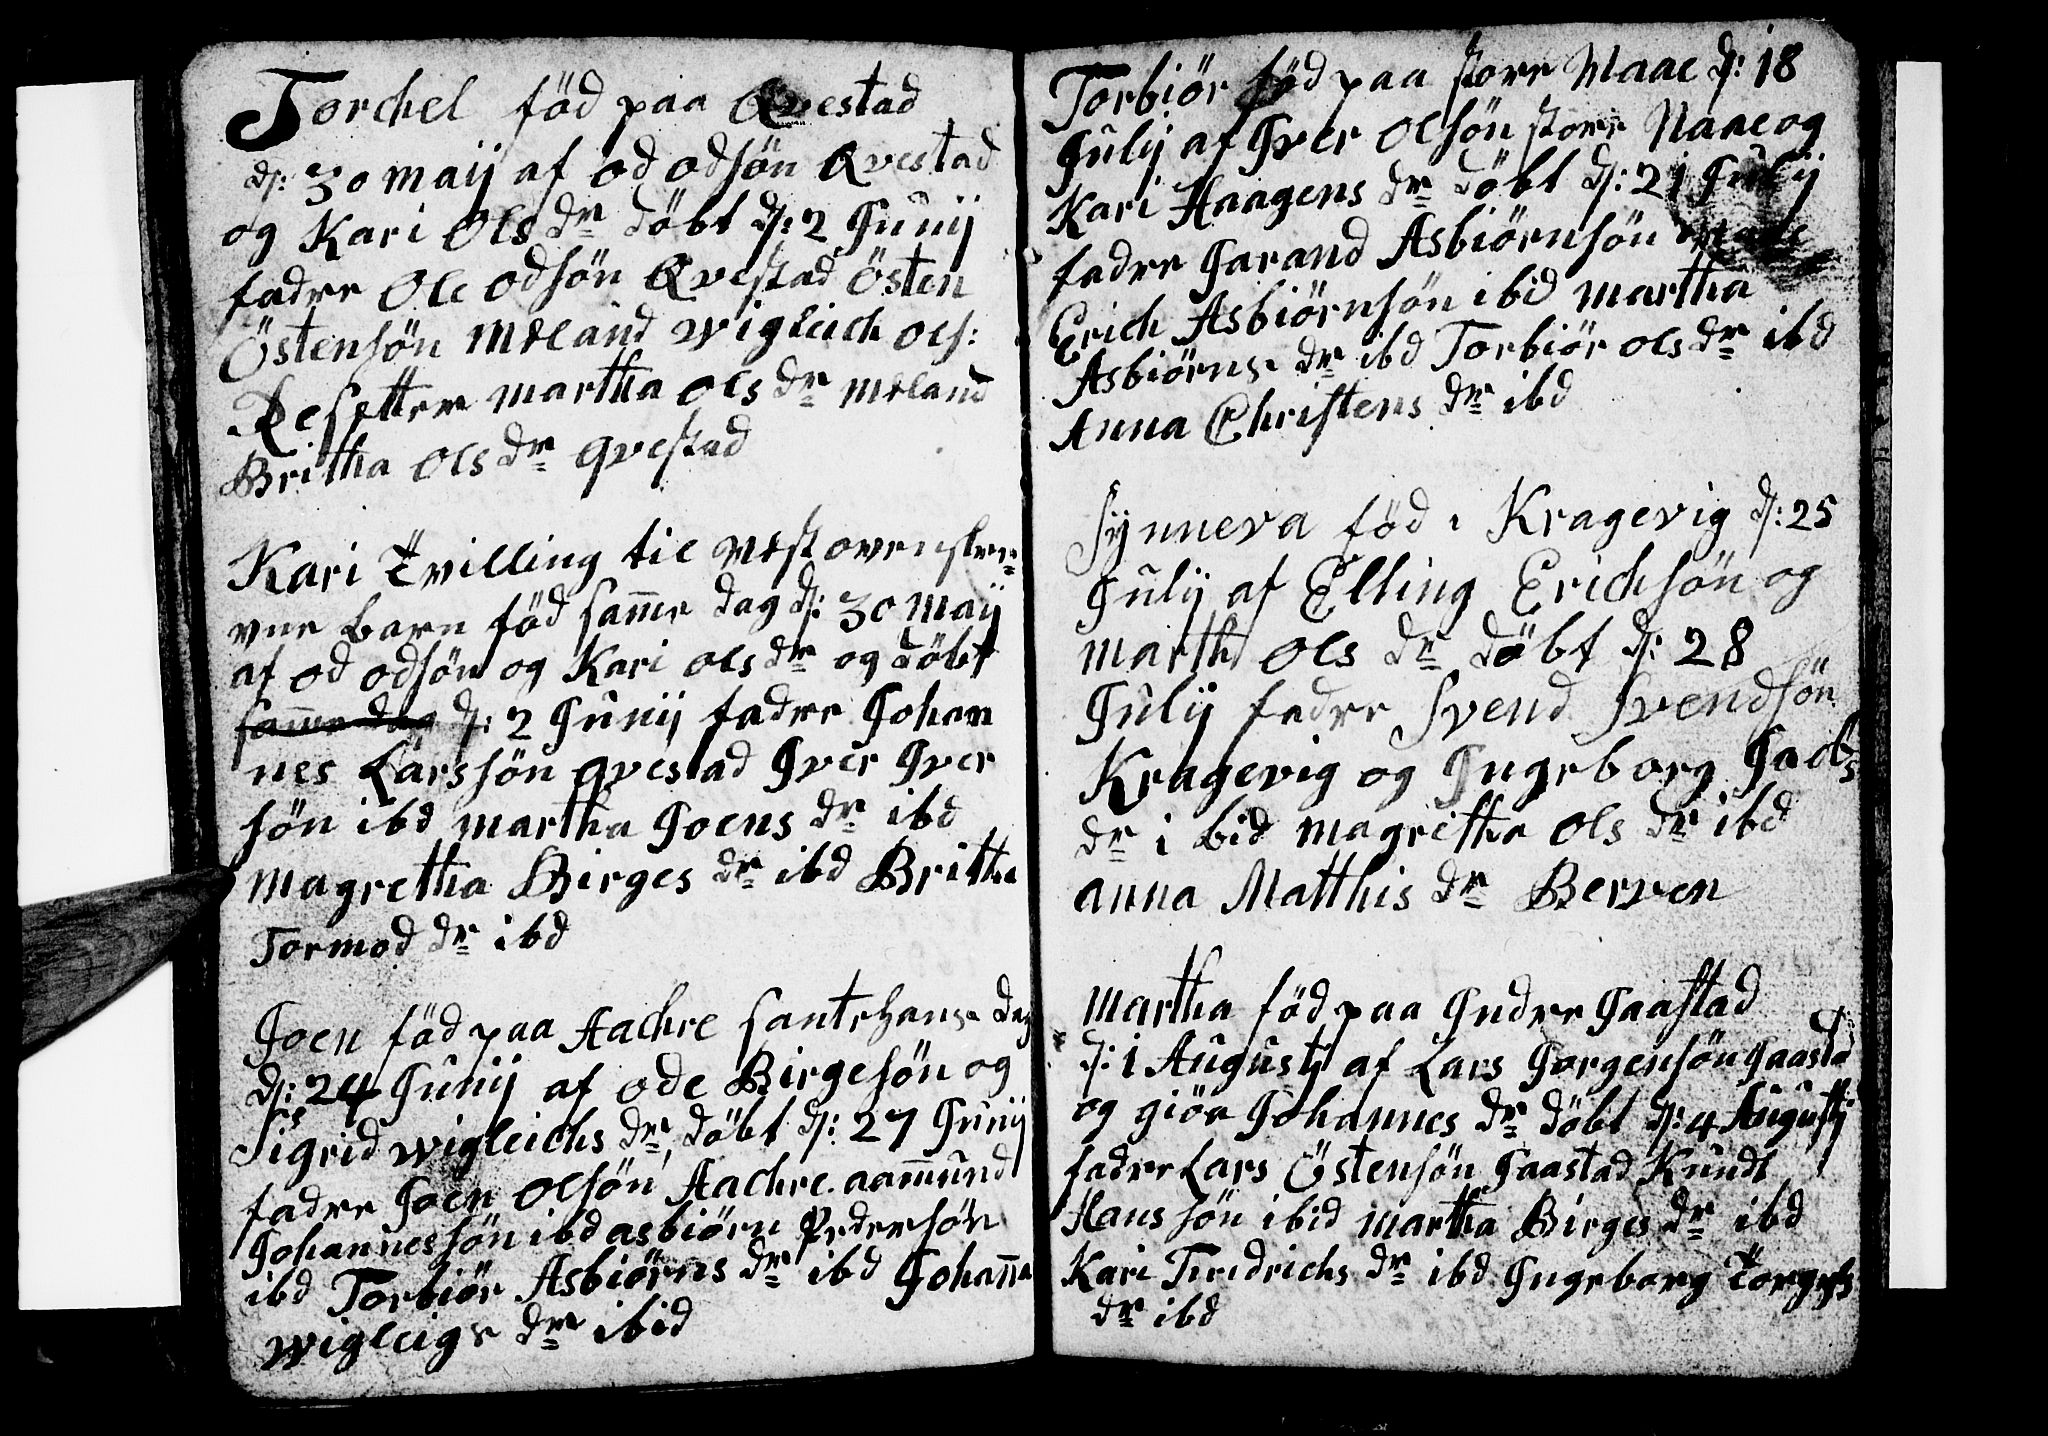 Torchel föd paa Qvestad
d: 30 maij af od odsön Qvestad
og Kari Ols dr döbt d: 2 Junij
fadre Ole odsön Qvestad Östen
Östensön Mæland Wigleich ols:
Desetter martha ols dr mæland
Britha ols dr qvestad
Kari Tvilling til næst ovenskre-
vne barn föd samme dag d: 30 maij
af od odsön og Kari ols dr og döbt
samme dag d: 2 Junij fadre Johan
nes Larssön qvestad Iver Iver
sön ibd martha Joens dr ibd
magretha Birges dr ibd Britha
Tormod dr ibd
Joen föd paa Aachre santehans dag
d: 24 Junij af ode Birgesön og
Sigrid wigleichs dr, döbt d: 27 Junij
fadre Joen olsön Aachre aamund
Johannessön ibd asbiörn Pedersön
ibd Torbiör Asbiörns dr ibd Johanna
wigleigs dr ibid
Torbiör föd paa store Naae d: 18
Julij af Iver olsön store Naae og
Kari Haagens dr döbt d: 21 Julij
fadre Jarand Asbiörnsön
Erich Asbiörnsön ibid martha
Asbiörns dr ibd Torbiör ols dr ibd
Anna Christens dr ibd
Synneva föd i Kragevig d: 25
Julij af Elling Erichsön og
martha ols dr döbt d: 28
Julij fadre Svend Svendsön
Kragevig og Ingeborg Jacobs
dr ibid magretha ols dr ibd
anna Matthis dr Berven
martha föd paa Indre Jaastad
d: 1 Augustij af Lars Jorgensön Jaastad
og giöa Johannes dr döbt d: 4 Augustij
fadre Lars Östensön Jaastad Knudt
Hanssön ibid martha Birges dr ibd
Kari Fredrichs dr ibd Ingeborg Torgiels
dr ibd